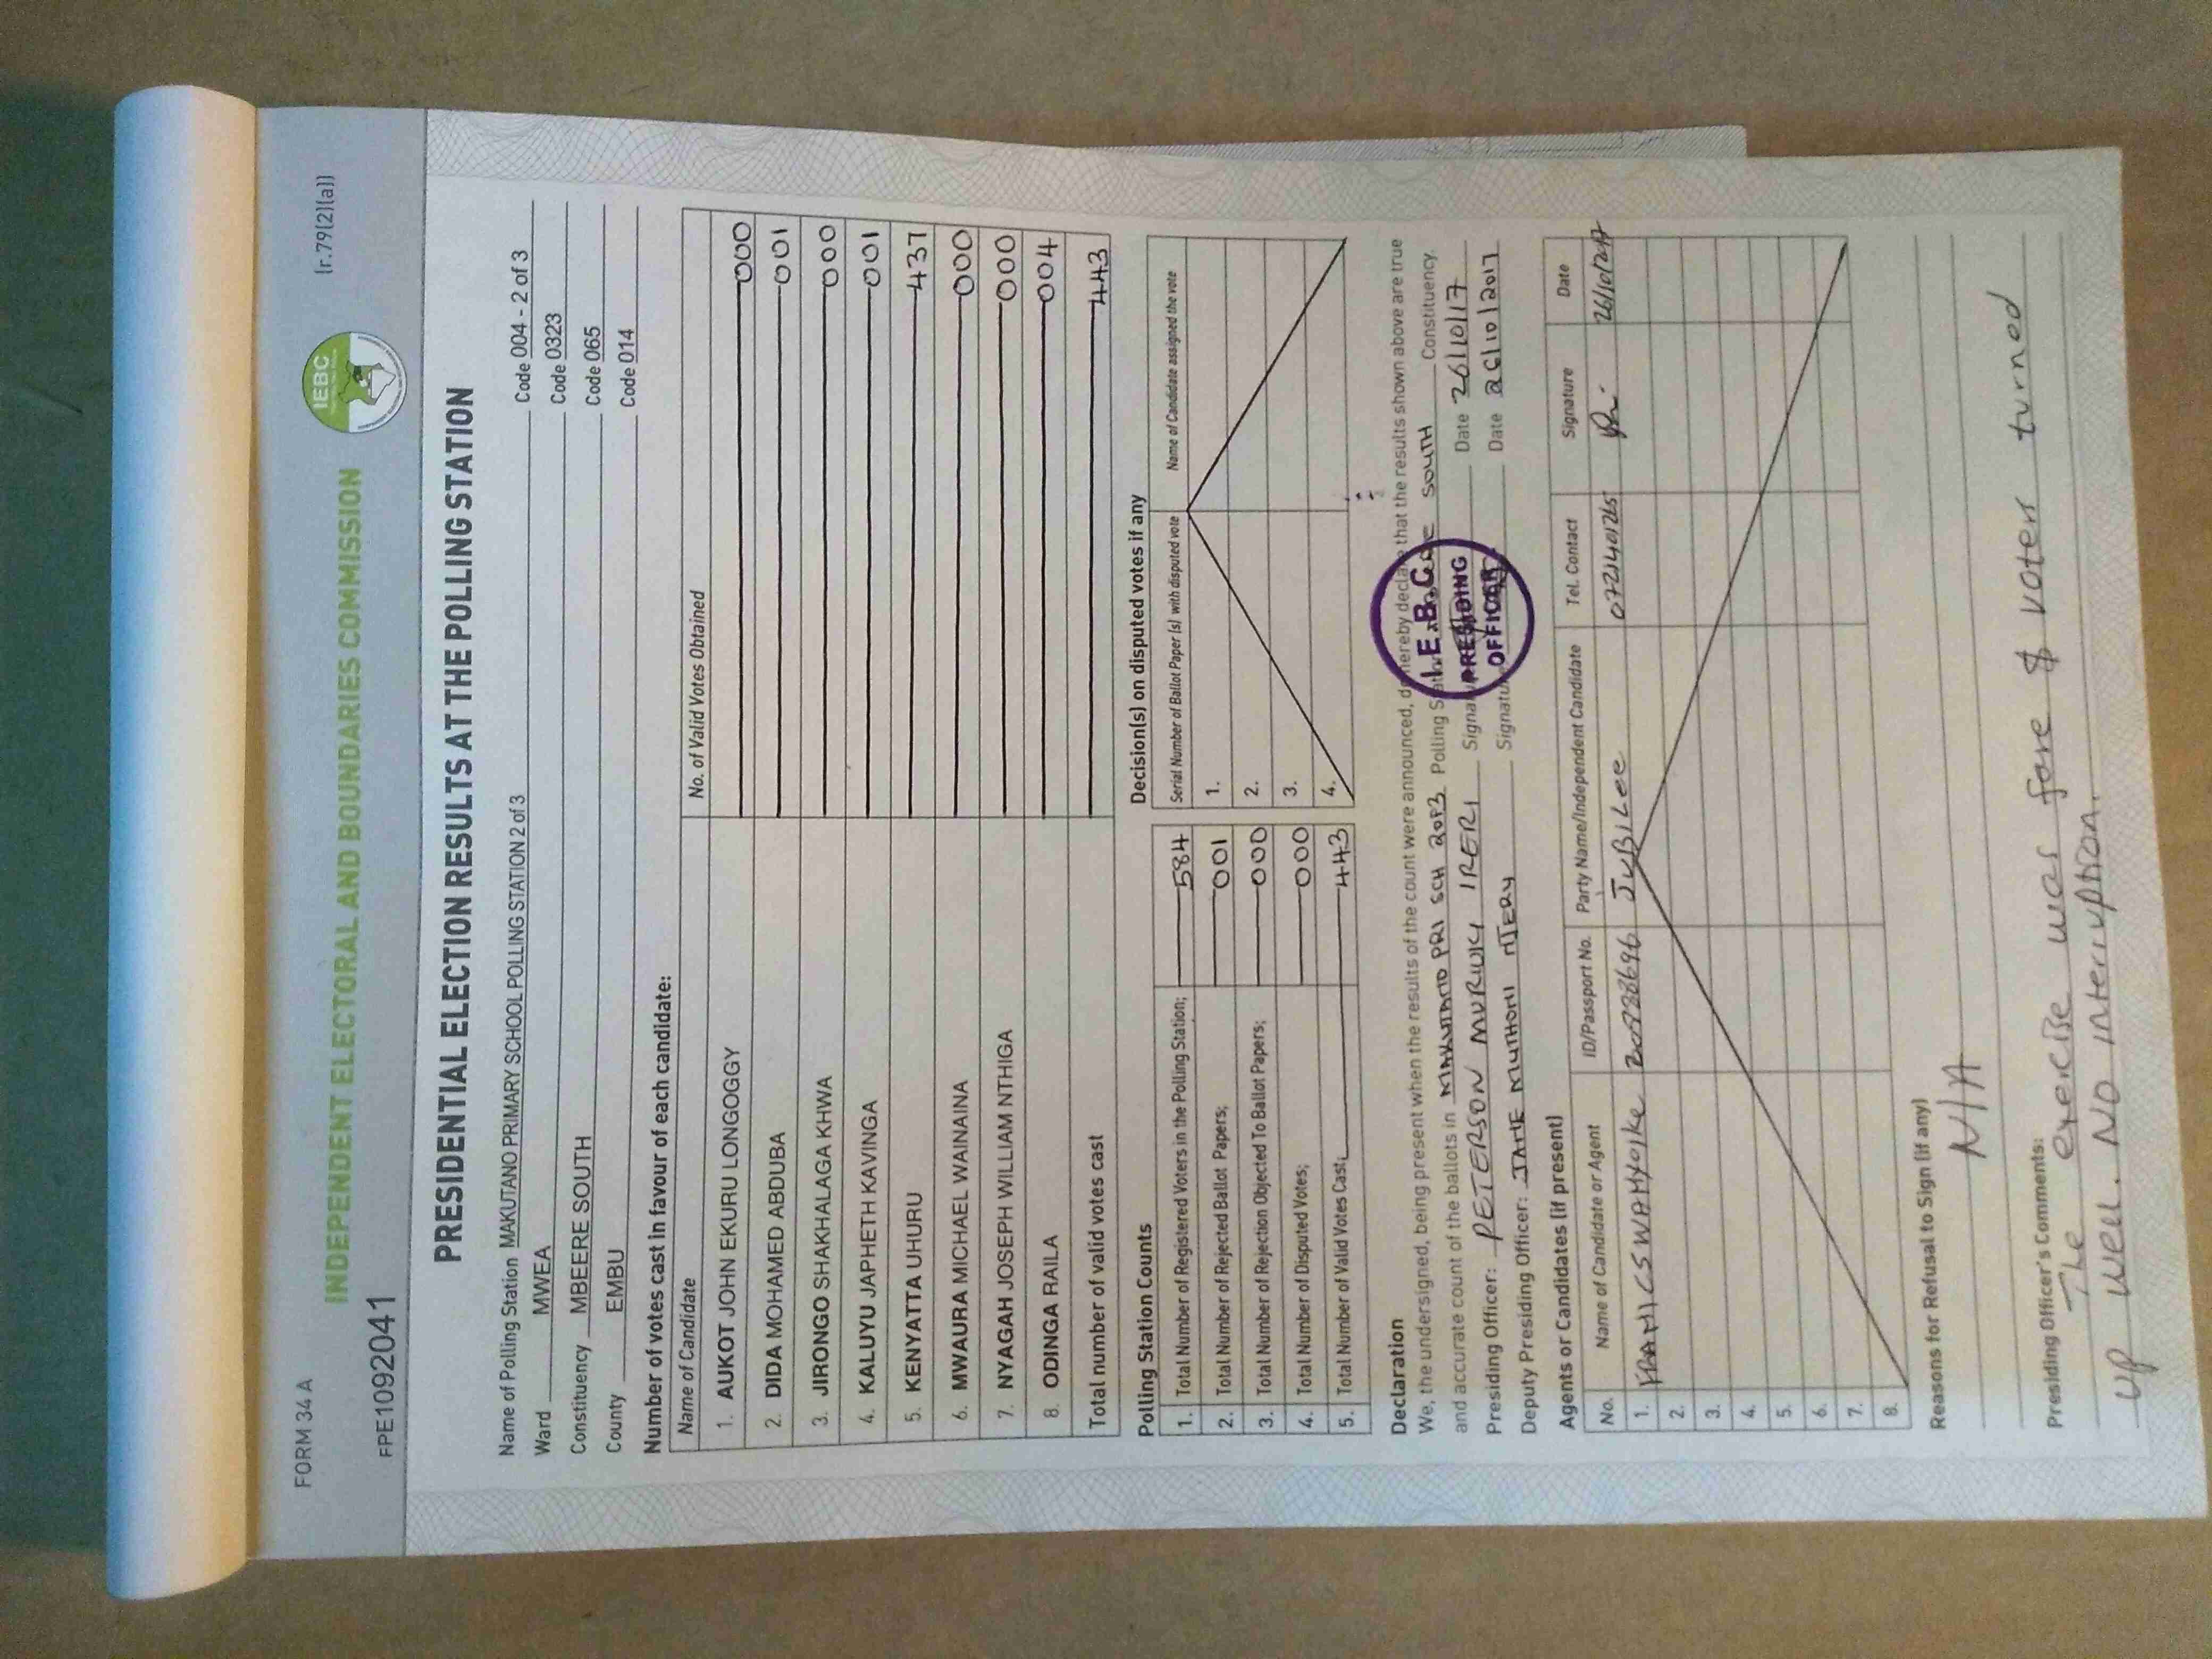 FORM 34 A
(r.79(2)(a))
IEBC
INDEPENDENT ELECTORAL AND BOUNDARIES COMMISSION
FPE1092041
PRESIDENTIAL ELECTION RESULTS AT THE POLLING STATION
Name of Polling Station MAKUTANO PRIMARY SCHOOL POLLING STATION 2 of 3 Code 004 - 2 of 3
Ward MWEA Code 0323
Constituency MBEERE SOUTH Code 065
County EMBU Code 014
Number of votes cast in favour of each candidate:
Name of Candidate No. of Valid Votes Obtained
1. AUKOT JOHN EKURU LONGOGGY 000
2. DIDA MOHAMED ABDUBA 001
3. JIRONGO SHAKHALAGA KHWA 000
4. KALUYU JAPHETH KAVINGA 001
5. KENYATTA UHURU 437
6. MWAURA MICHAEL WAINAINA 000
7. NYAGAH JOSEPH WILLIAM NTHIGA 000
8. ODINGA RAILA 004
Total number of valid votes cast 443
Polling Station Counts
1. Total Number of Registered Voters in the Polling Station; 584
2. Total Number of Rejected Ballot Papers; 001
3. Total Number of Rejection Objected To Ballot Papers; 000
4. Total Number of Disputed Votes; 000
5. Total Number of Valid Votes Cast; 443
Decision(s) on disputed votes if any
Serial Number of Ballot Paper (s) with disputed vote Name of Candidate assigned the vote
1.
2.
3.
4.
Declaration
We, the undersigned, being present when the results of the count were announced, do hereby declare that the results shown above are true
and accurate count of the ballots in MAKUTANO PRI SCH 2OF3 Polling Station SOUTH Constituency.
Presiding Officer: PETERSON MURIUKI IRERI Signature Date 26/10/17
Deputy Presiding Officer: JANE MUTHONI NJERU Signature Date 26/10/2017
I.E.B.C
PRESIDING
OFFICER
Agents or Candidates (if present)
No. Name of Candidate or Agent ID/Passport No. Party Name/Independent Candidate Tel. Contact Signature Date
1. JUBILee 26/10/2017
2.
3.
4.
5.
6.
7.
8.
Reasons for Refusal to Sign (if any)
N/A
Presiding Officer's Comments:
The exercise was fare & voters turned
up well. No interruption.